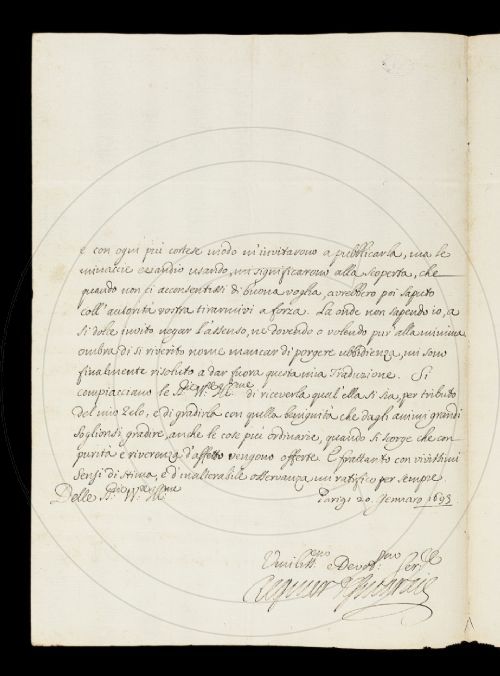 e con ogni più cortese modo m'invitarono a pubblicarla, ma le
minaccie eziandio usando, mi significarono alla scoperta, che
quando non ci acconsentissi di buona voglia, avrebbero poi saputo
coll'autorità vostra tirarmivi a forza. La onde non sapendo io, a
si dolce invito negar l'assenso, ne dovendo o volendo pur'alla minima
ombra di si riverito nome mancar di porgere ubbidienza, mi sono
finalmente risoluto a dar fuora questa mia Traduzione. Si
compiacciano le di riceverla qual'ella si sia, per tributo
del mio Zelo, e di gradirla con quella benignità che dagli animi grandi
soglionsi gradire, anche le cose più ordinarie, quando si scorge che con
purità e riverenza d'affetto vengono offerte. E frattanto con vivissimi
sensi di stima, e d'inalterabile osservanza mi ratifico per sempre
Delle Parigi 20. Gennaro 1693
Umiliss.mo e Devot.mo Ser.re